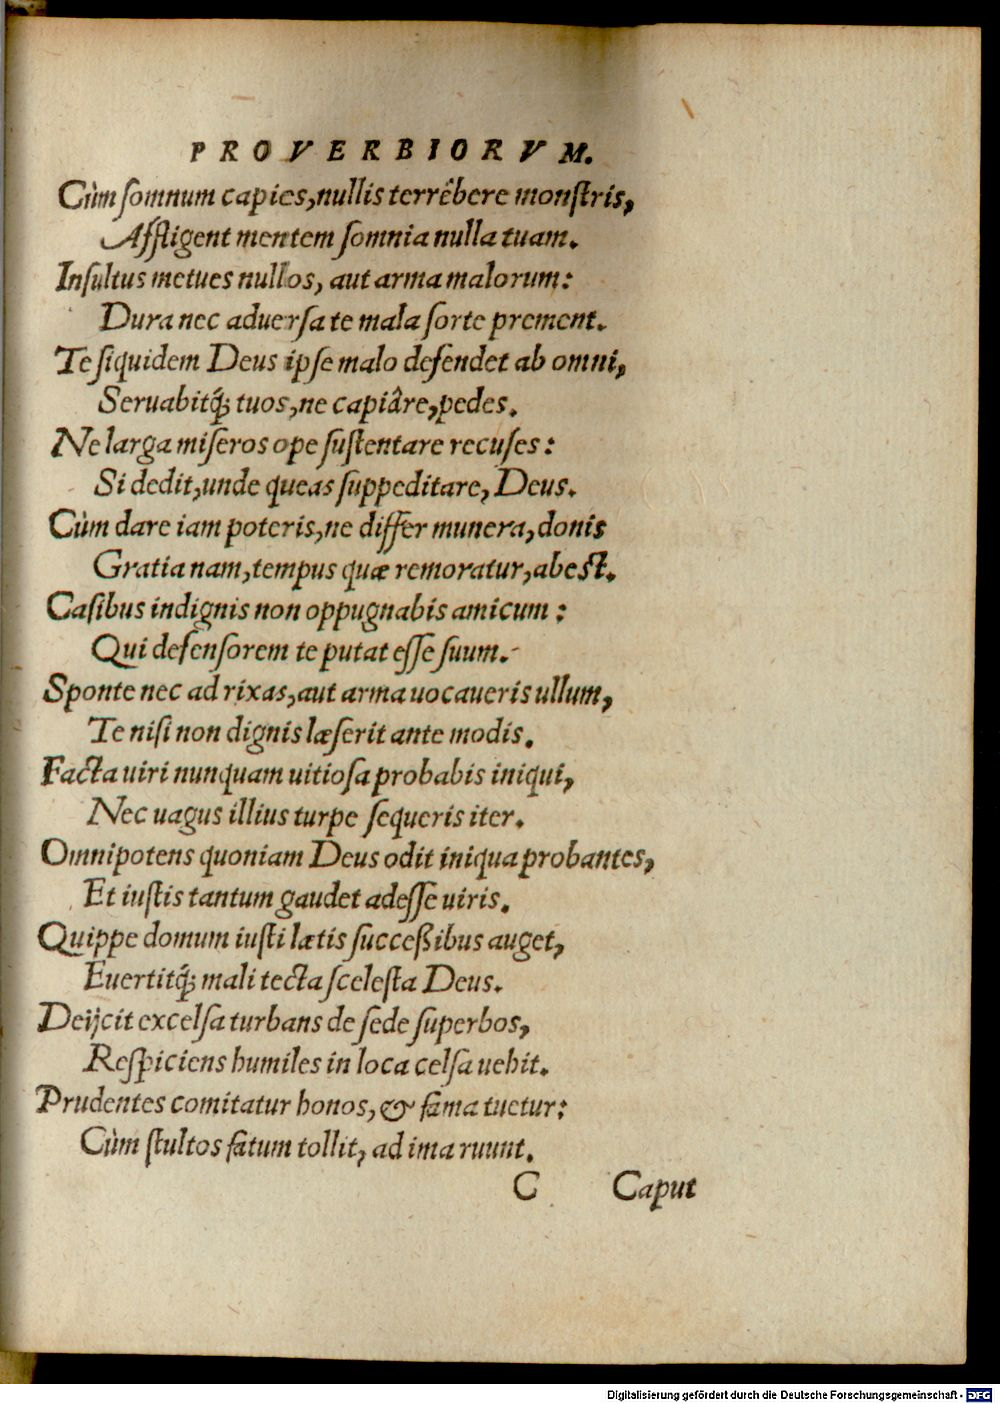 PROVERBIORVM.
Cùm somnum capies, nullis terrêbere monstris,
Affligent mentem somnia nulla tuam.
Insultus metues nullos, aut arma malorum:
Dura nec aduersa te mala sorte prement.
Te siquidem Deus ipse malo defendet ab omni,
Seruabitq́; tuos, ne capiâre, pedes.
Ne larga miseros ope sustentare recuses:
Si dedit, unde queas suppeditare, Deus.
Cùm dare iam poteris, ne differ munera, donis
Gratia nam, tempus quæ remoratur, abest.
Casibus indignis non oppugnabis amicum:
Qui defensorem te putat esse suum.
Sponte nec ad rixas, aut arma uocaueris ullum,
Te nisi non dignis læserit ante modis.
Facta uiri nunquam uitiosa probabis iniqui,
Nec uagus illius turpe sequeris iter.
Omnipotens quoniam Deus odit iniqua probantes,
Et iustis tantum gaudet adesse uiris.
Quippe domum iusti lætis succeßibus auget,
Euertitq́; mali tecta scelesta Deus.
Deijcit excelsa turbans de sede superbos,
Respiciens humiles in loca celsa uehit.
Prudentes comitatur honos, & fama tuetur:
Cùm stultos fatum tollit, ad ima ruunt.
C Caput
Digitalisierung gefördert durch die Deutsche Forschungsgemeinschaft - DFG